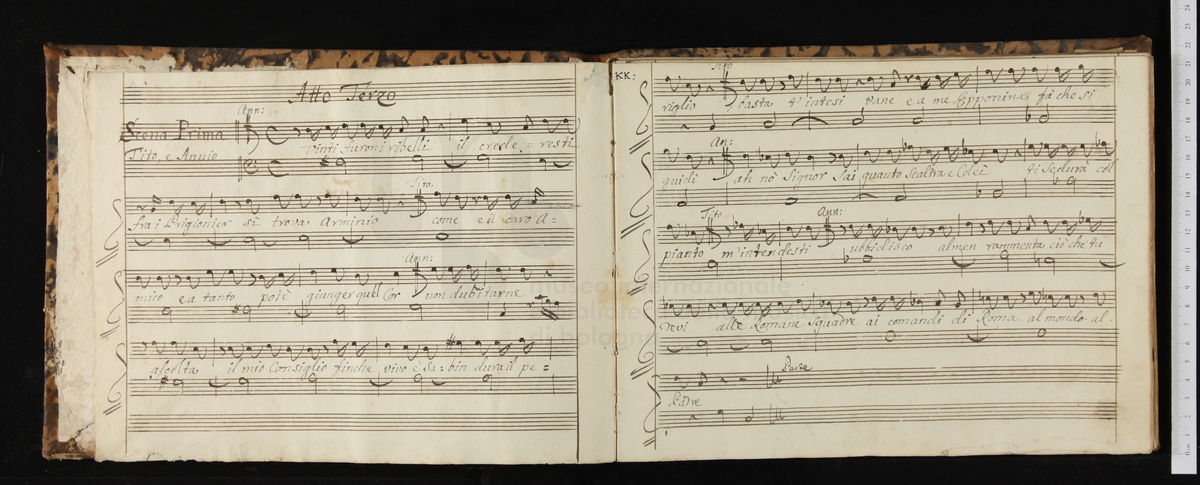 Atto Terzo
Ann:
Scena Prima
Tito, e Annio
Vinti furon i ribelli il crede = resti
Tito.
fra i Prigionier si trova Arminio come e il caro A =
Ann:
mico e a tanto potè giunger quel Cor non dubitarne
ascolta il mio Consiglio finche vivo è Sa = bin dura il pe =
KK:
Tito
riglio basta t'intesi vane e a me Epponina fà che si
An:
guidi ah nò Signor Sai quanto Scaltra e Colei ti Sedurà col
Tito Ann:
pianto m'intendesti ubbidisco almen rammenta ciò che tu
devi alle Romane Squadre ai comandi di Roma al mondo al
Parte
Padre
museo internazionale
biblioteca
di bologna